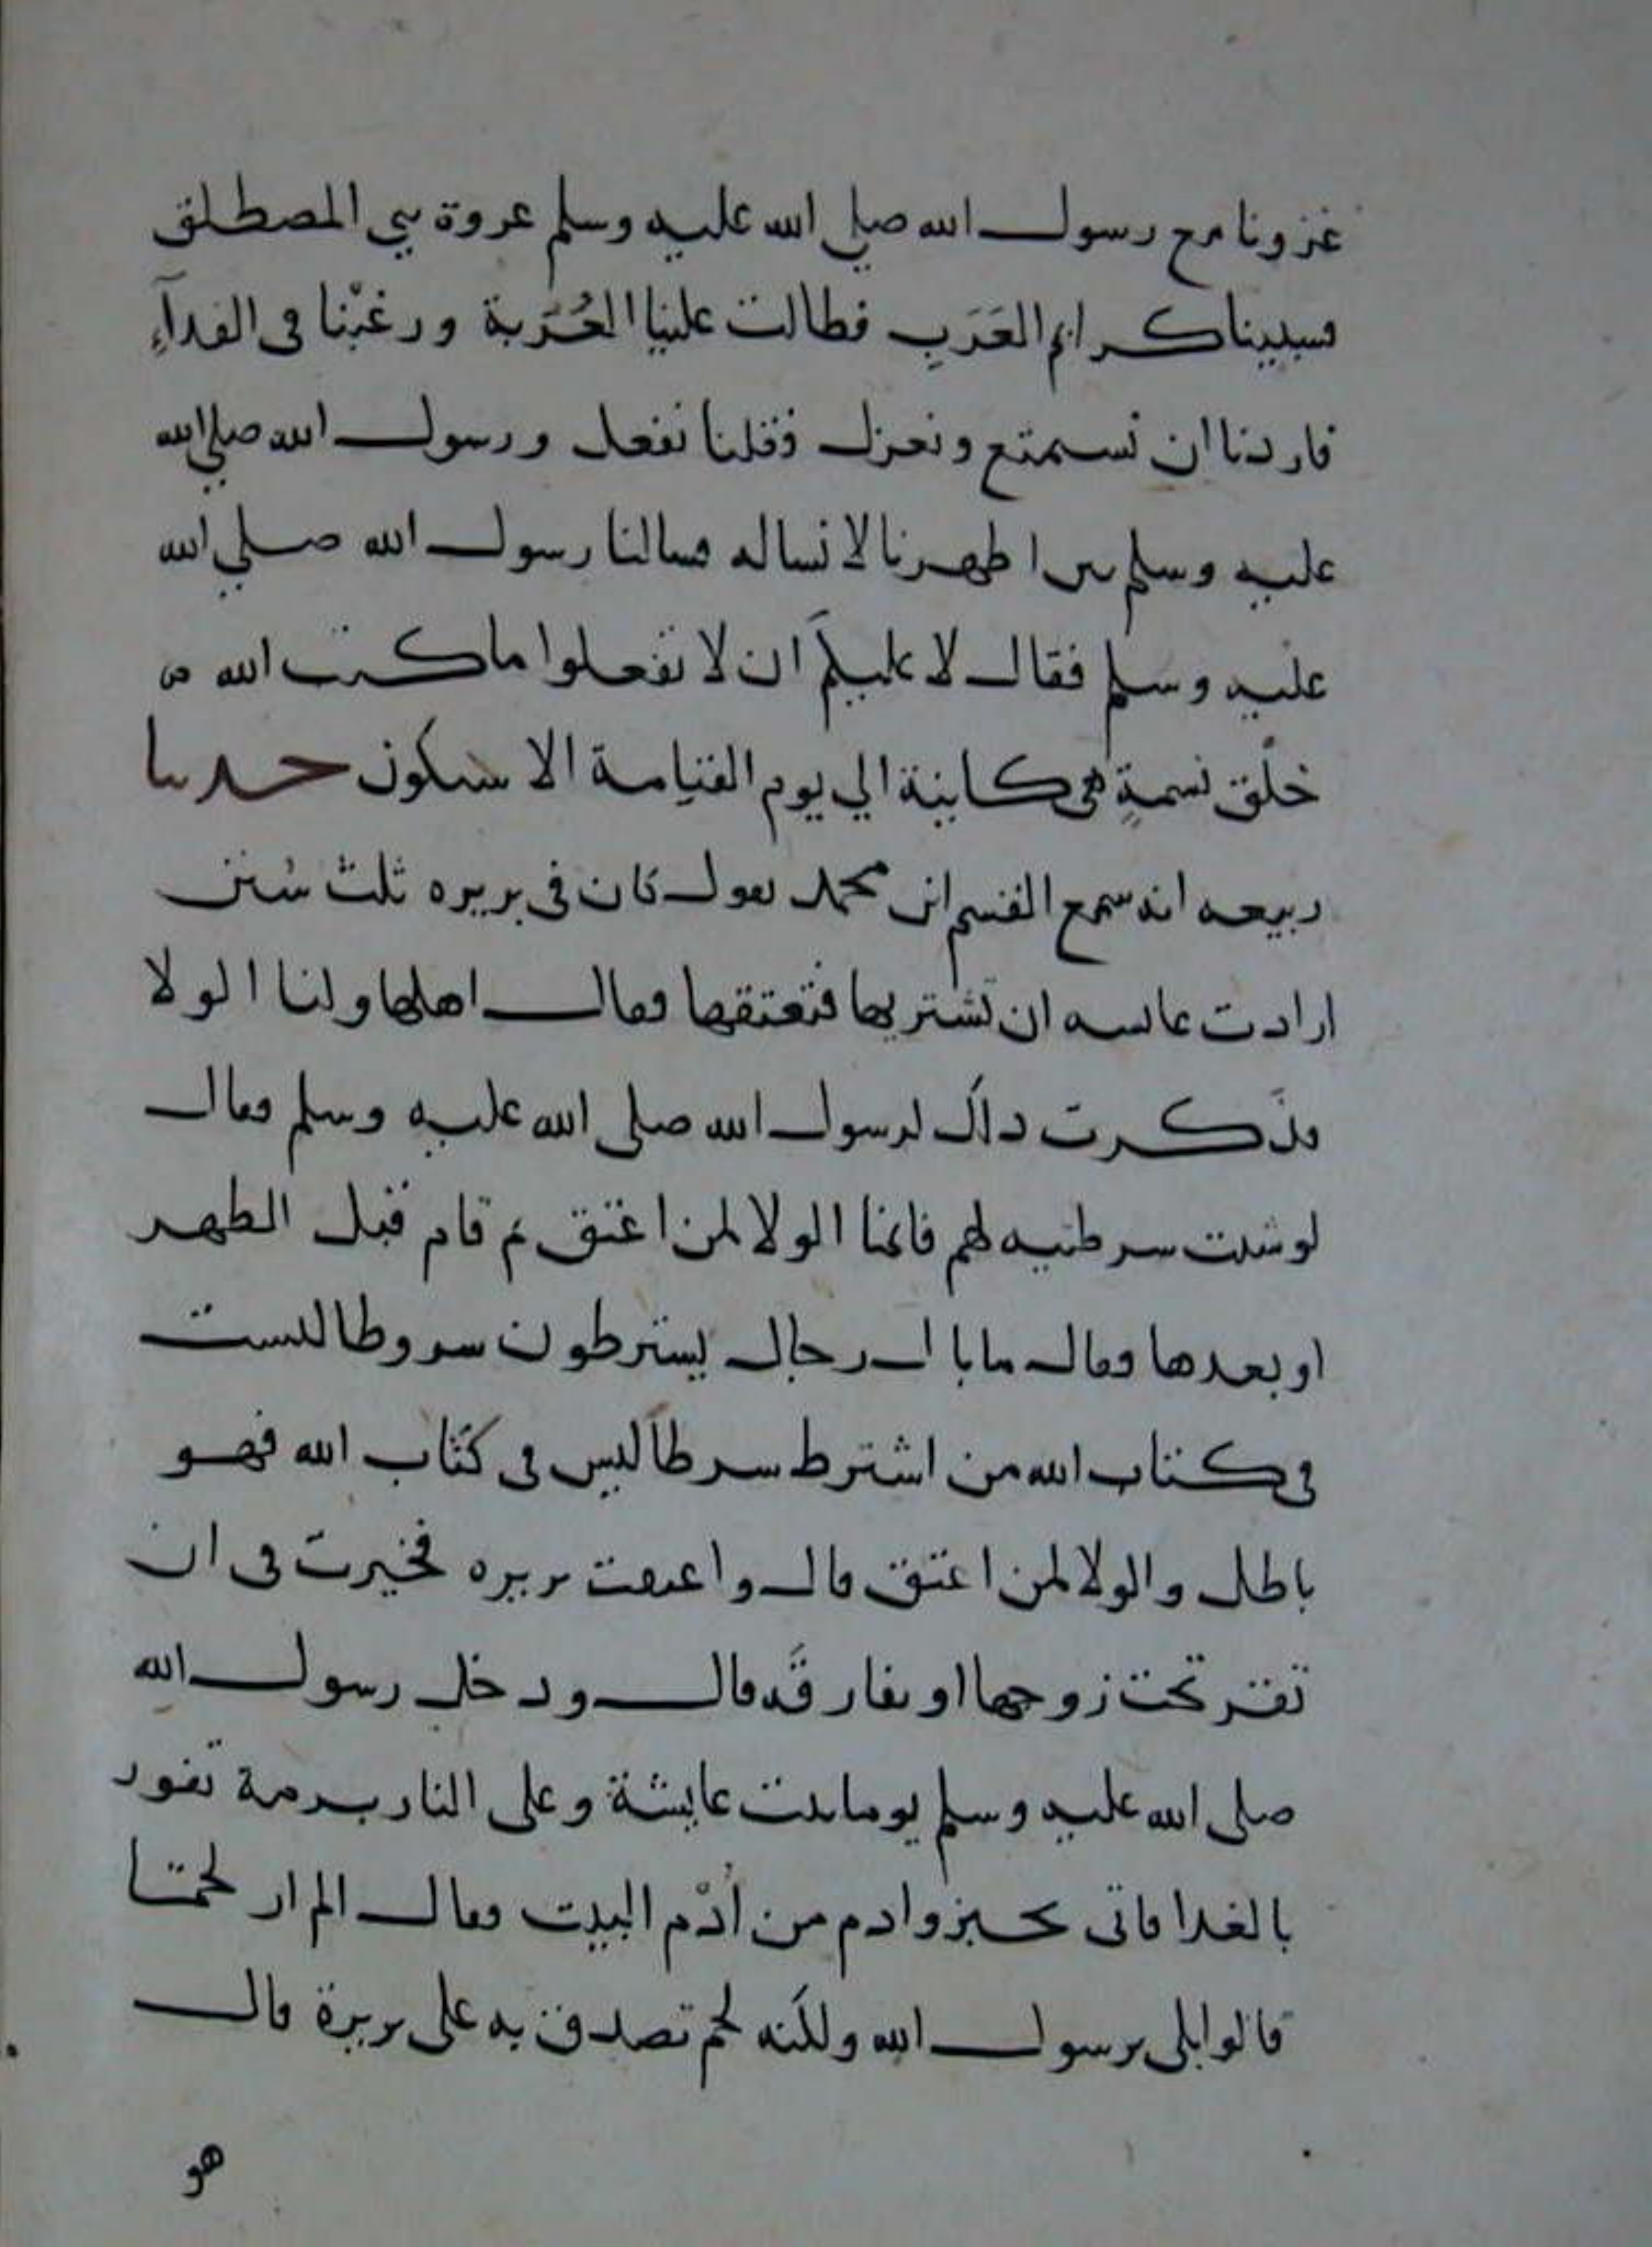 غزونا مع رسول الله صلي الله عليه وسلم عروة بني المصطلق
فسبينا كرايم العَرَبِ فطالت علينا العُزبة ورغبْنا في الفدآءِ
فاردنا ان نستمتع ونعزل فقلنا نفعل ورسول الله صلي الله
عليه وسلم بين اظهرنا لا نساله فسالنا رسول الله صلي الله
عليه وسلم فقال لا عليكم ان لا تفعلوا ما كتب الله من
خلق نسمةٍ هي كاينة الي يوم القيامة الا ستكون حدثنا
ربيعه انه سمع القسم ابن محمد يقول كان في بريره ثلث سُنن
ارادت عايشه ان تشتريها فتعتقها فقال اهلها ولنا الولا
فذكرت ذلك لرسول الله صلى الله عليه وسلم فقال
لو شئت شرطتيه لهم فانما الولا لمن اعتق ثم قام قبل الظهر
او بعدها فقال ما بال رجال يشترطون شروطا ليست
في كتاب الله من اشترط شرطا ليس في كتاب الله فهو
باطل والولا لمن اعتق قال واعتقت بريره فخيرت في ان
تقر تحت زوجها او تفارقه قال ودخل رسول الله
صلى الله عليه وسلم يوما بيت عايشة وعلى النار برمة تفور
بالغدا فاتى بخبز وادم من اُدْم البيت فقال الم ار لحمتنا
قالوا بلى يرسول الله ولكنه لحم تصدق به على بريرة قال
هو